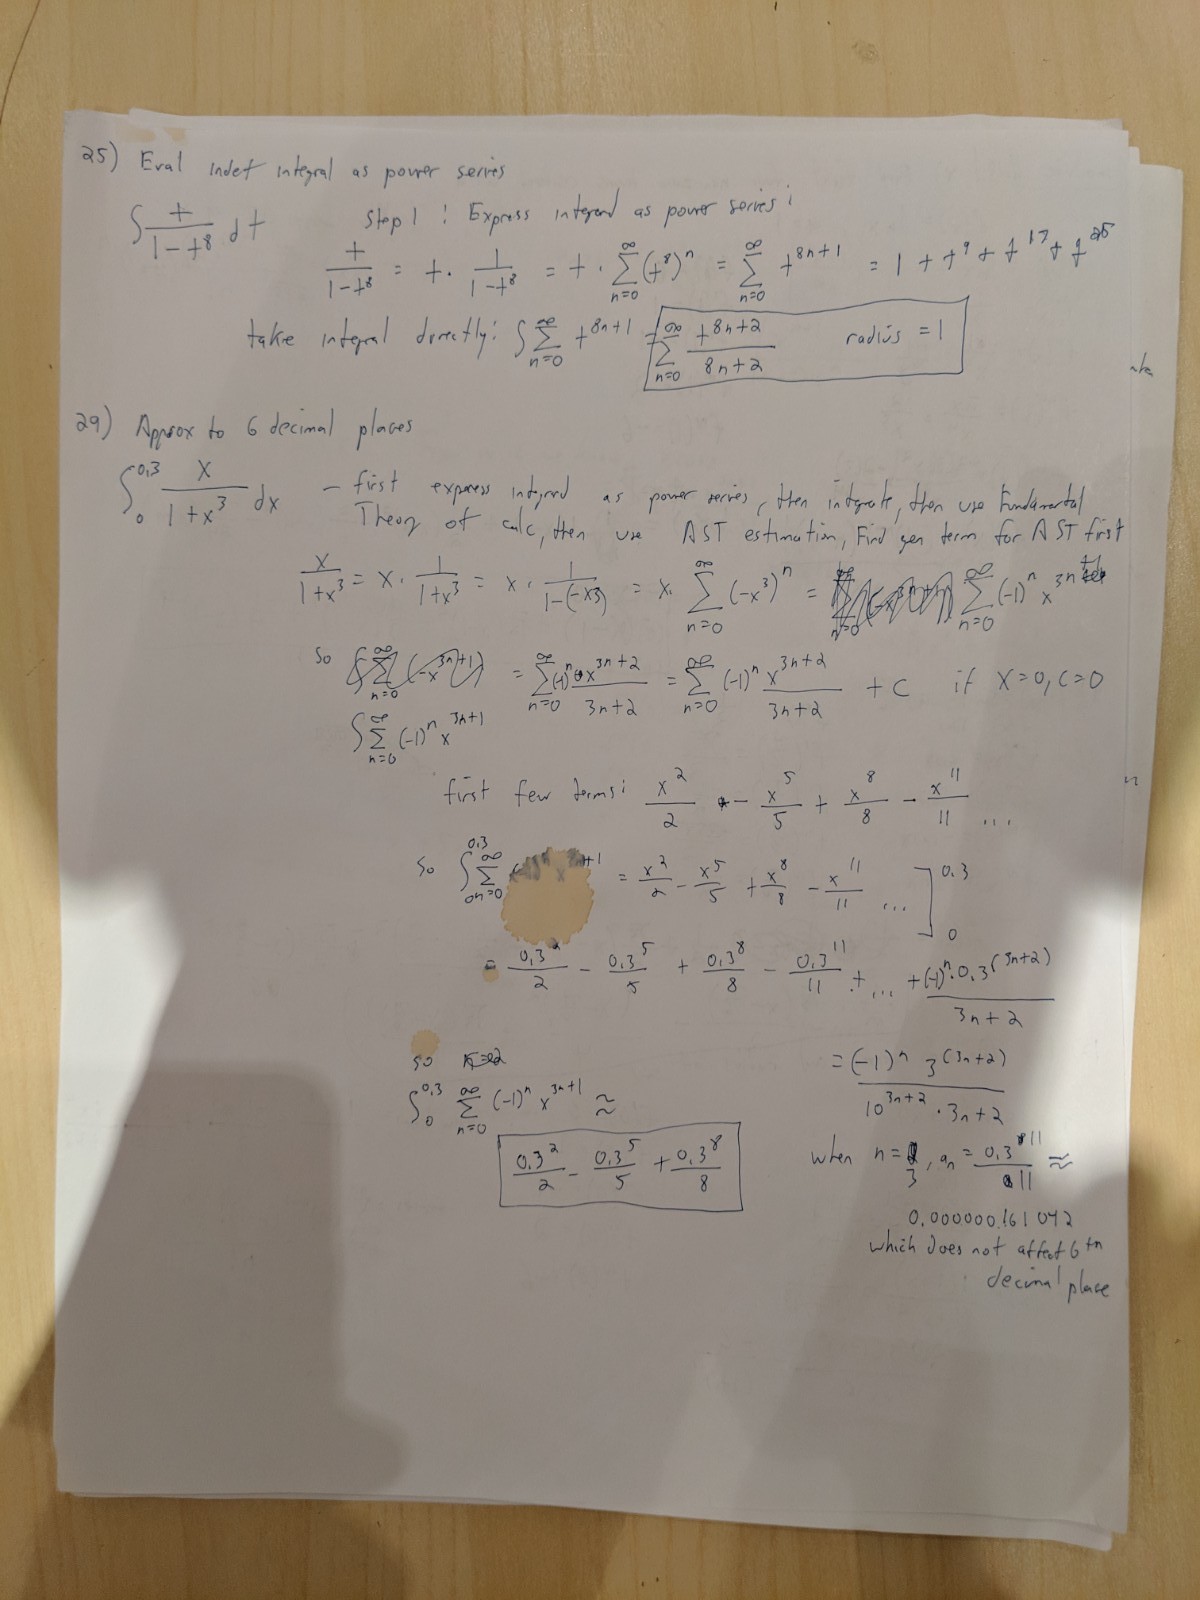 25) Eval indef integral as power series
∫ t/(1-t^8) dt Step 1: Express integrand as power series:
t/(1-t^8) = t · 1/(1-t^8) = t · ∑_{n=0}^∞ (t^8)^n = ∑_{n=0}^∞ t^{8n+1} = 1 + t^9 + t^17 + t^25
take integral directly: ∫ ∑_{n=0}^∞ t^{8n+1} = ∑_{n=0}^∞ t^{8n+2}/(8n+2) radius = 1
29) Approx to 6 decimal places
∫_0^{0.3} x/(1+x^3) dx – first express integrand as power series, then integrate, then use Fundamental
Theory of calc, then use AST estimation, Find gen term for AST first
x/(1+x^3) = x · 1/(1+x^3) = x · 1/(1-(-x^3)) = x · ∑_{n=0}^∞ (-x^3)^n = ∑_{n=0}^∞ (-1)^n x^{3n+1}
so = ∑_{n=0}^∞ (-1)^n x^{3n+2}/(3n+2) = ∑_{n=0}^∞ (-1)^n x^{3n+2}/(3n+2) + C if x=0, C=0
∫ ∑_{n=0}^∞ (-1)^n x^{3n+1}
first few terms: x^2/2 - x^5/5 + x^8/8 - x^11/11 ...
so ∫_0^{0.3} ∑_{n=0}^∞ x +1 = x^2/2 - x^5/5 + x^8/8 - x^11/11 ... ]_0^{0.3}
= 0.3^2/2 - 0.3^5/5 + 0.3^8/8 - 0.3^11/11 + ... + (-1)^n · 0.3^(3n+2)/(3n+2)
= (-1)^n 3^(3n+2)/(10^{3n+2} · 3n+2)
so
∫_0^{0.3} ∑_{n=0}^∞ (-1)^n x^{3n+1} ≈
0.3^2/2 - 0.3^5/5 + 0.3^8/8
when n = 3, a_n = 0.3^11/11 ≈
0.000000161042
which does not affect 6th
decimal place